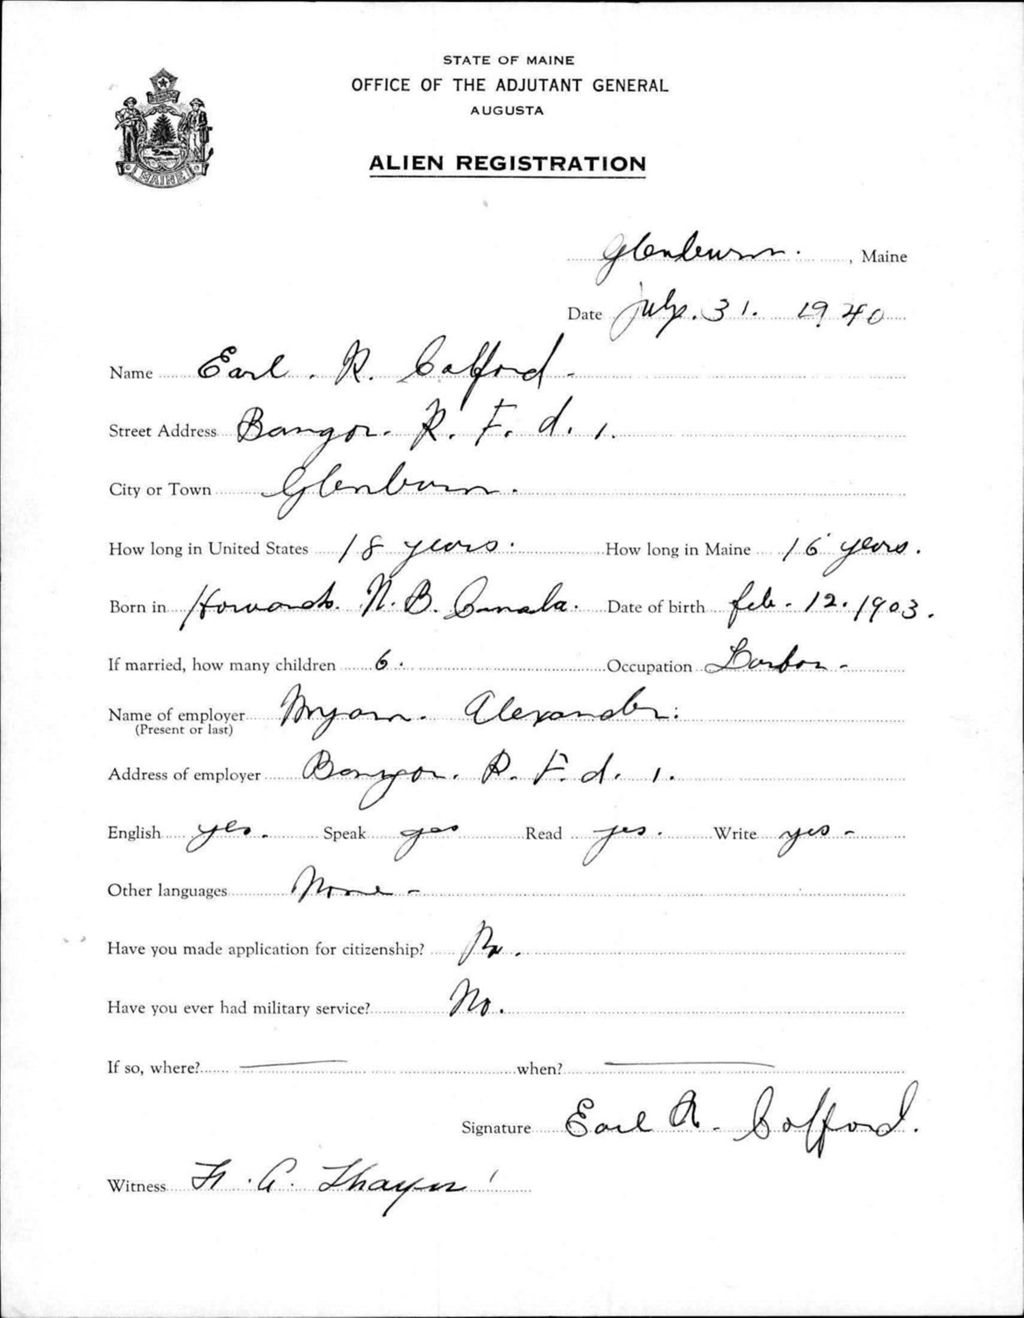 STATE OF MAINE
OFFICE OF THE ADJUTANT GENERAL
AUGUSTA
ALIEN REGISTRATION
MAINE
Glenburn. , Maine
Date July. 31. 1940
Name Earl. R. Cofford -
Street Address Bangor. R. F. d. 1.
City or Town Glenburn.
How long in United States 18 years. How long in Maine 16 years.
Born in N. B. Canada. Date of birth feb. 12. 1903.
If married, how many children 6. Occupation
Name of employer Myron. Alexander.
(Present or last)
Address of employer Bangor. R. F. d. 1.
English yes. Speak yes Read yes. Write yes -
Other languages None -
Have you made application for citizenship? No.
Have you ever had military service? No.
If so, where? — when? —
Signature Earl R. Cofford.
Witness A. Thayer